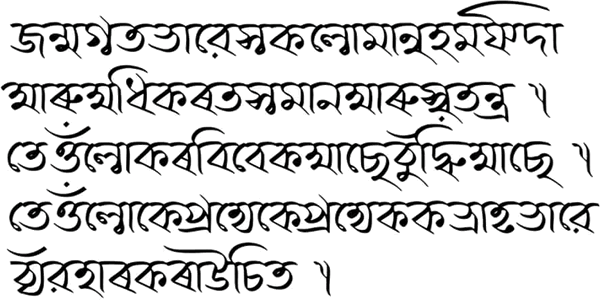 জন্মগতভাৱেসকলোমানুহমৰ্যদা
আৰুঅধিকৰতসমানআৰুস্বতন্ত্ৰ ৷
তেওঁলোকৰবিবেকআছেবুদ্ধিআছে ৷
তেওঁলোকেপ্ৰত্যেকেপ্ৰত্যেককভ্ৰাতৃভাৱে
ব্যৱহাৰকৰাউচিত ৷